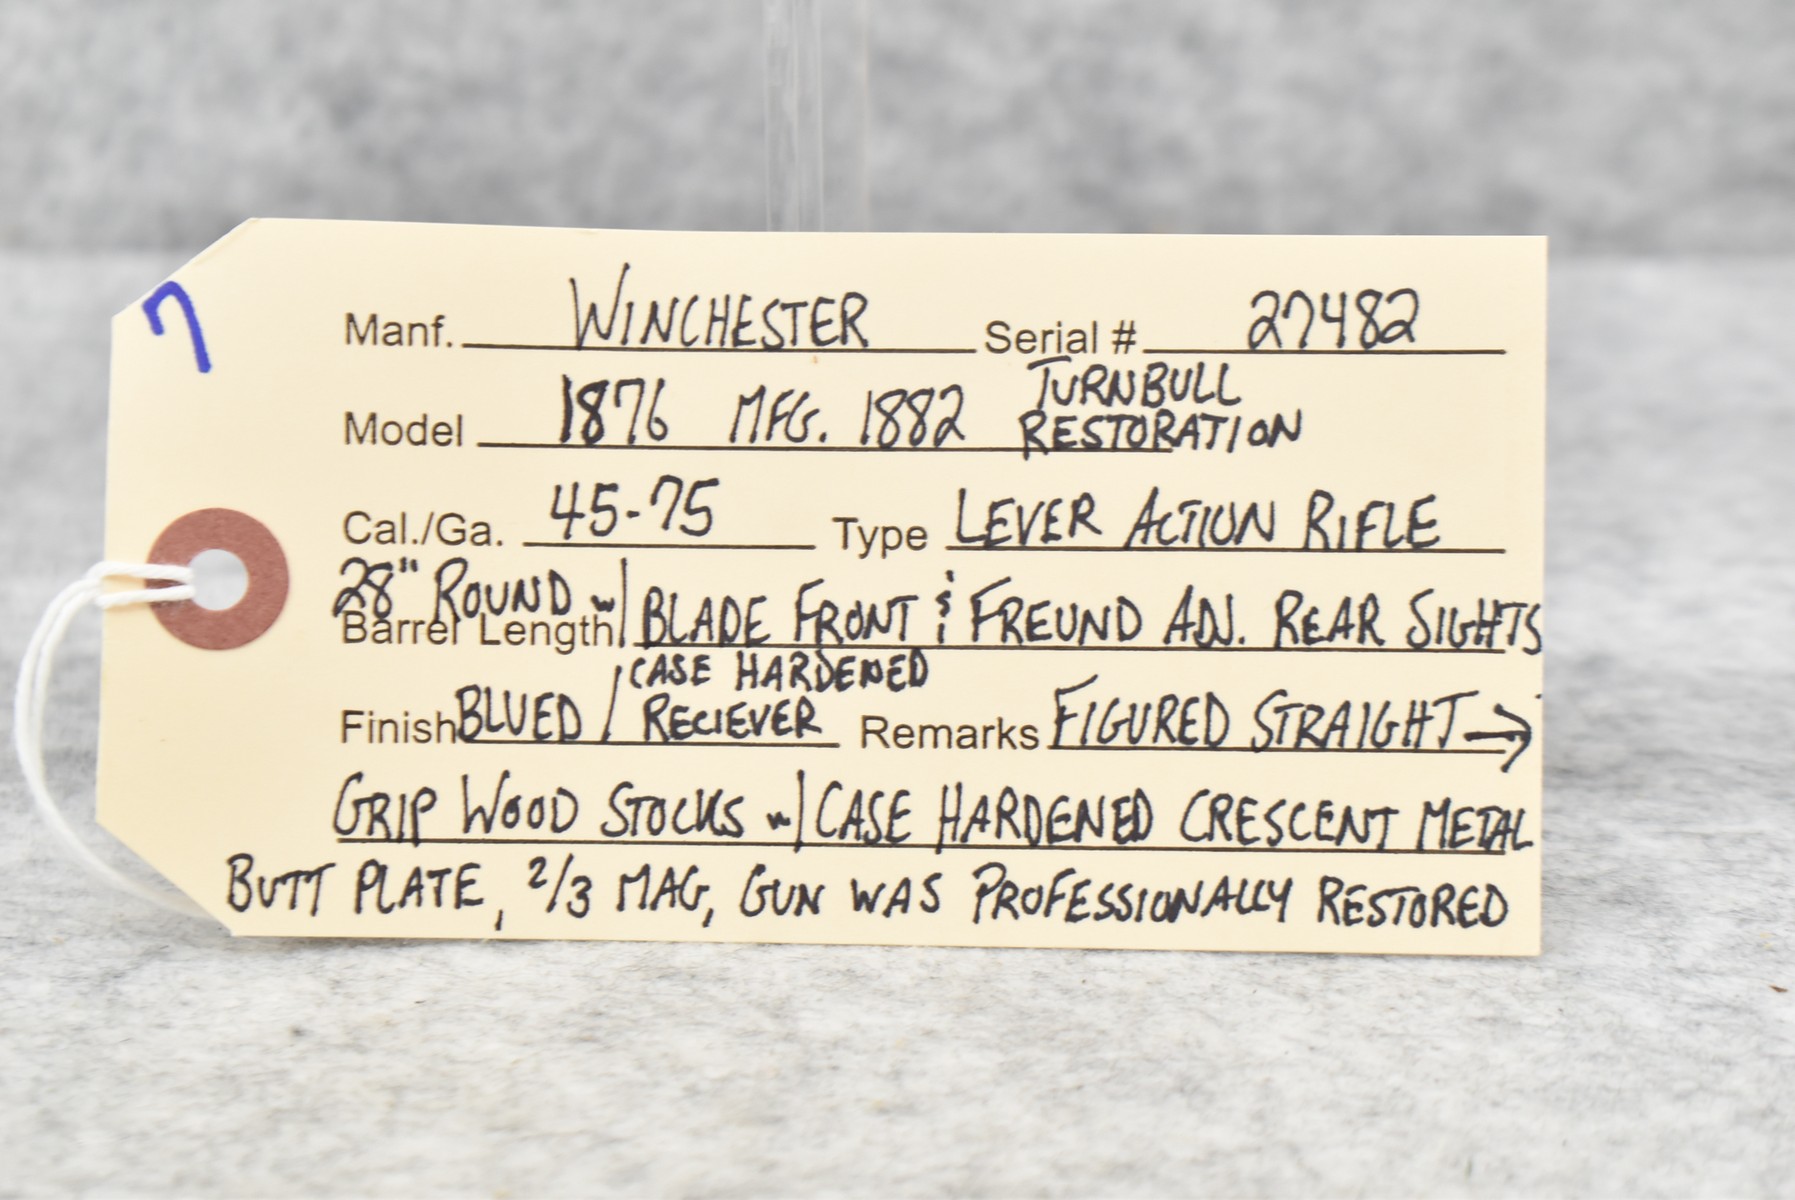 7
Manf. WINCHESTER Serial # 27482
Model 1876 MFG. 1882 TURNBULL
RESTORATION
Cal./Ga. 45-75 Type LEVER ACTION RIFLE
28" ROUND w/ BLADE FRONT & FREUND ADJ. REAR SIGHTS
Barrel Length
CASE HARDENED
Finish BLUED / RECIEVER Remarks FIGURED STRAIGHT →
GRIP WOOD STOCKS w/ CASE HARDENED CRESCENT METAL
BUTT PLATE, 2/3 MAG, GUN WAS PROFESSIONALLY RESTORED